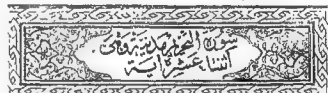 سورة التحريم مدنية وهى
اثنتا عشرة آية